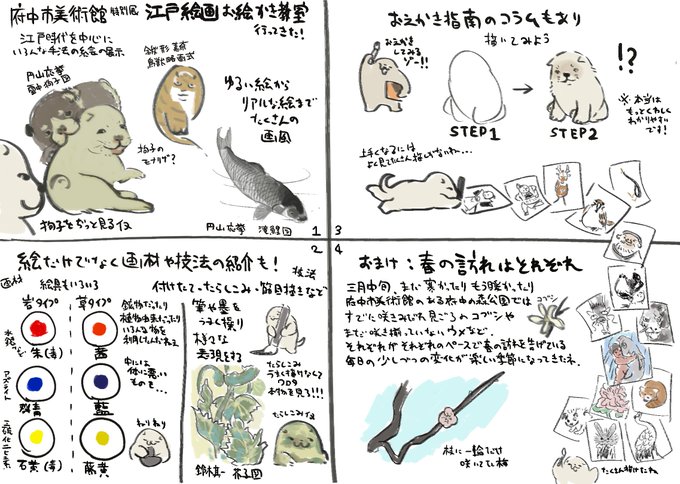 府中市美術館 特別展 江戸絵画お絵かき教室
行ってきた！
江戸時代を中心に
いろんな手法の絵の展示
円山応挙
雪中狗子図
鍬形蕙斎
鳥獣略画式
ゆるい絵から
リアルな絵まで
たくさんの
画風
狗子の
モナリザ？
狗子をぎゅっと見る仏
円山応挙 滝鯉図
1
おえかき指南のコラムもあり
描いてみよう
おえかき
してみる
ゾー!!
STEP1
STEP2
!?
※本当は
もっとくわしく
わかりやすい
です！
上手くなるには
よく見てたくさん描かないとね…
3
2
絵だけでなく画材や技法の紹介も！
画材
絵具もいろいろ
岩タイプ
草タイプ
水銀
朱(毒)
茜
アズライト
群青
藍
石黄(毒)
藤黄
鉱物だったり
植物由来だったり
いろんな物を
利用してんだねえ
中には
体に悪い
ものも…
ねりねり
技法
付けたて・たらしこみ・筋目描きなど
筆や墨を
うまく操り
様々な
表現をする
たらしこみ
うまく描けなくて
プロの
本物を見る!!!
たらしこみ仏
鈴木其一 芥子図
4
おまけ：春の訪れはそれぞれ
三月中旬、まだ寒かったりもう温かかったり
府中市美術館のある府中の森公園では
すでに咲きみだれ見ごろのコブシや
まだ咲き揃っていないウメなど
それぞれがそれぞれのペースで春の訪れを告げている
毎日の少しずつの変化が楽しい季節になってきたネ
コブシ
枝に一輪だけ
咲いてた梅
たくさん描けたね